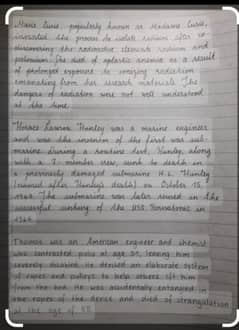 Marie Curie, popularly known as Madame Curie,
invented the process to isolate radium after co-
discovering the radioactive elements radium and
polonium. She died of aplastic anemia as a result
of prolonged exposure to ionizing radiation
emanating from her research materials. The
dangers of radiation were not well understood
at the time.
Horace Lawson Hunley was a marine engineer
and was the inventor of the first war sub-
marine. During a routine test, Hunley, along
with a 7-member crew, sunk to death in
a previously damaged submarine H.L. Hunley
(named after Hunley's death) on October 15,
1863. The submarine was later reused in the
successful sinking of the USS Housatonic in
1864.
Thomas was an American engineer and chemist
who contracted polio at age 51, leaving him
severely disabled. He devised an elaborate system
of ropes and pulleys to help others lift him
from the bed. He was accidentally entangled in
the ropes of the device and died of strangulation
at the age of 55.